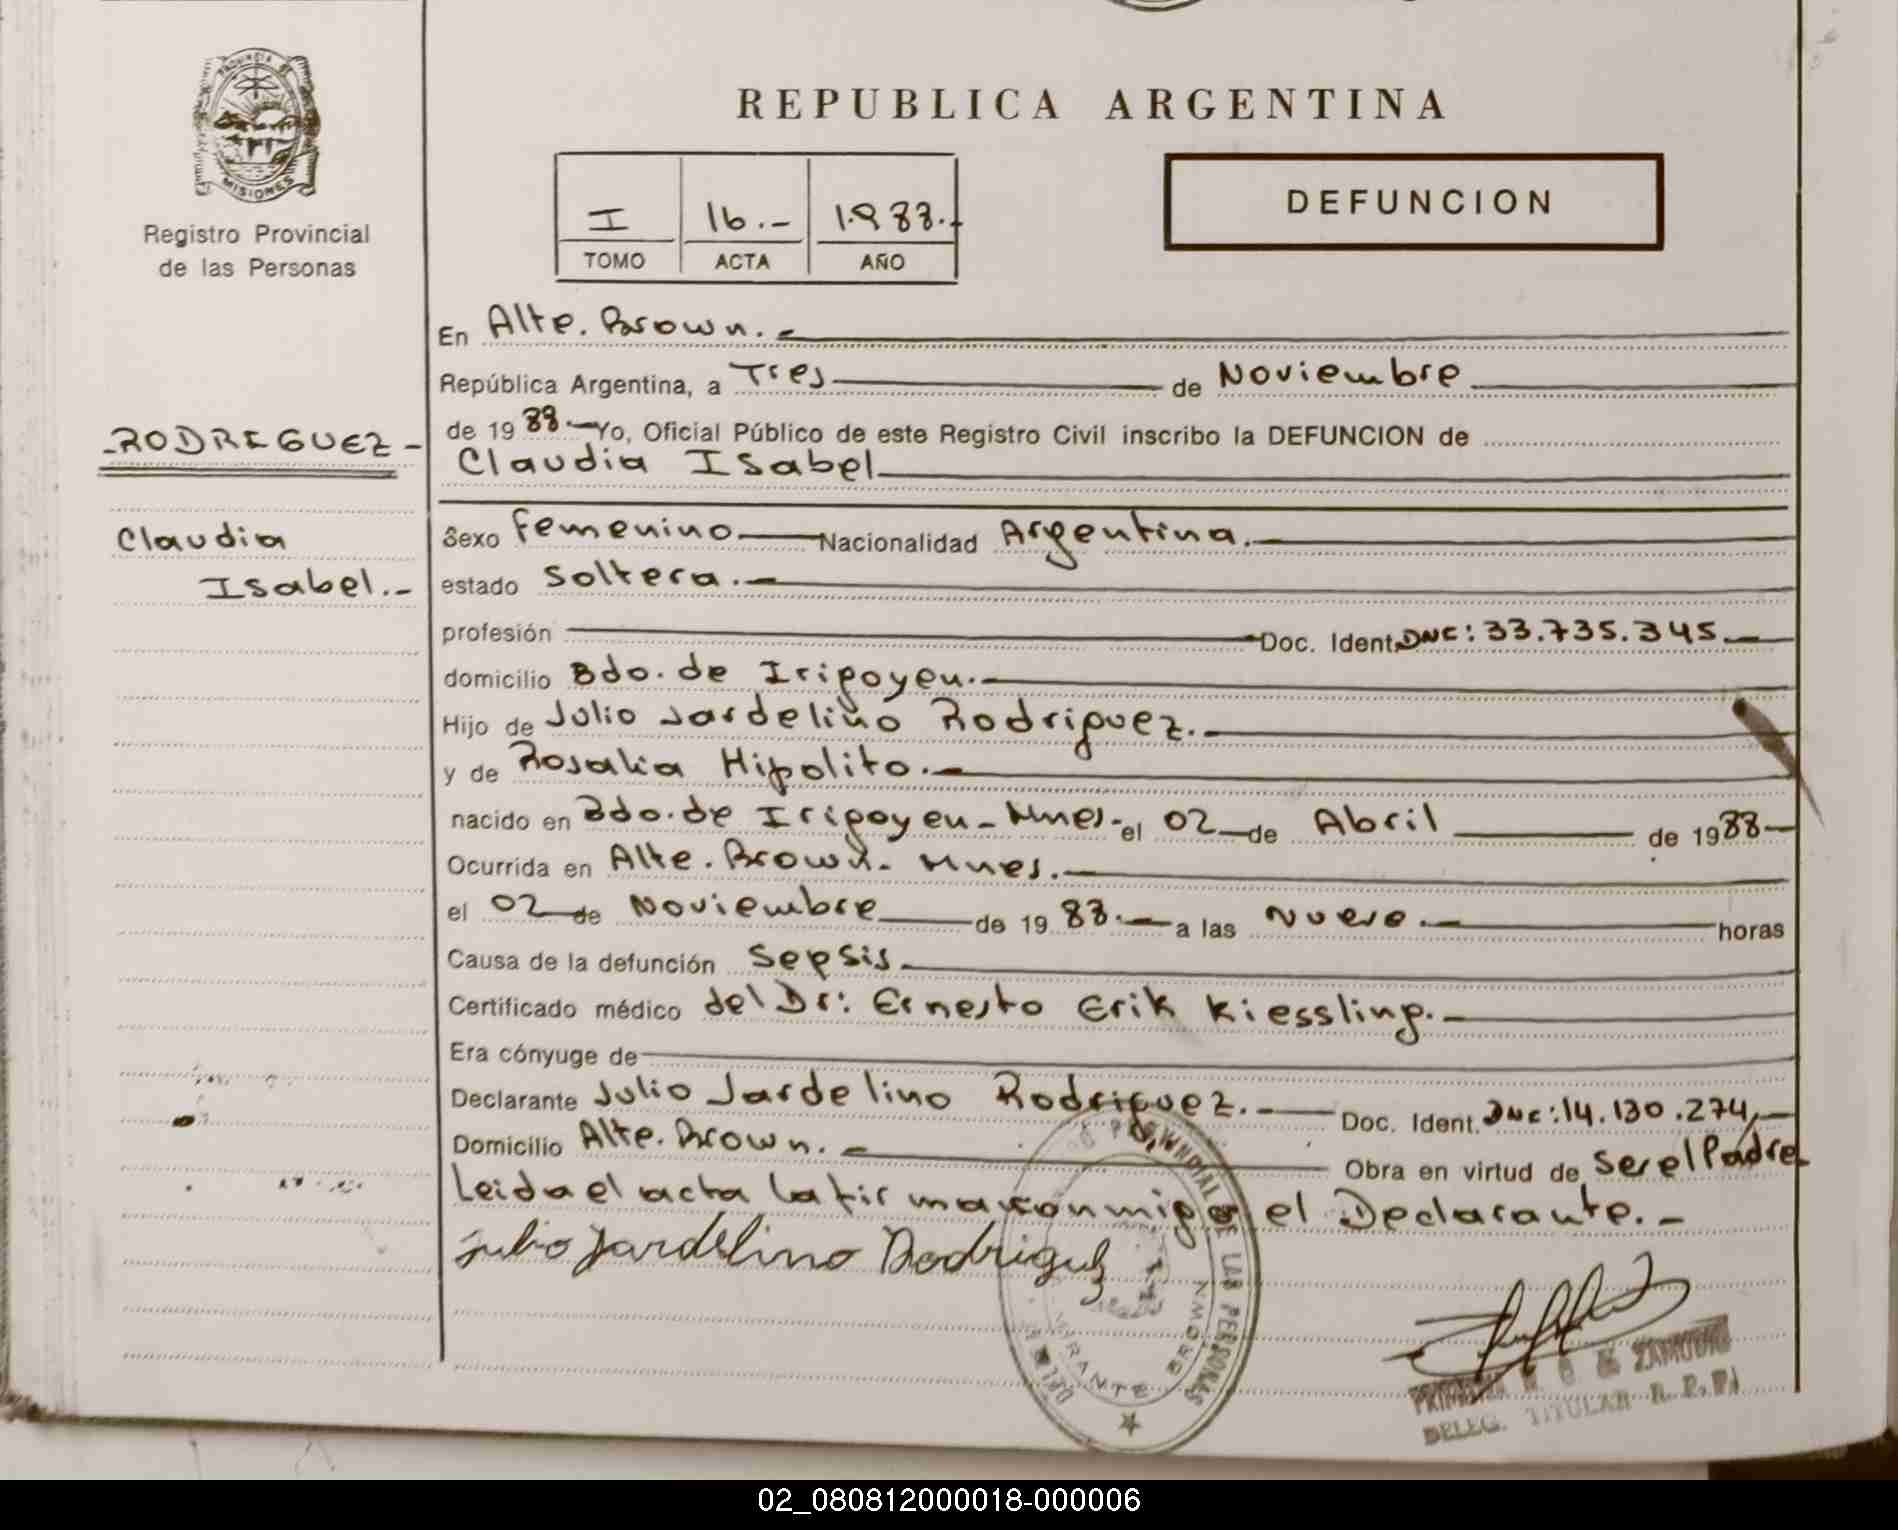 PROVINCIA DE
MISIONES
Registro Provincial
de las Personas
REPUBLICA ARGENTINA
I 16.- 1.988.-
TOMO ACTA AÑO
DEFUNCION
En Alte. Brown.-
República Argentina, a Tres de Noviembre
de 19 88.- Yo, Oficial Público de este Registro Civil inscribo la DEFUNCION de
-RODRIGUEZ-
Claudia Isabel
Claudia
Isabel.-
Sexo Femenino Nacionalidad Argentina.
estado Soltera.-
profesión Doc. Ident. DNI: 33.735.345.-
domicilio Bdo. de Irigoyen.-
Hijo de Julio Jardelino Rodriguez.-
y de Rosalia Hipolito.-
nacido en Bdo. de Irigoyen - Mnes.- el 02 de Abril de 1988-
Ocurrida en Alte. Brown- Mnes.-
el 02 de Noviembre de 19 88.- a las Nueve.- horas
Causa de la defunción Sepsis
Certificado médico del Dr: Ernesto Erik Kiessling.-
Era cónyuge de
Declarante Julio Jardelino Rodriguez.- Doc. Ident. DNI: 14.130.274,-
Domicilio Alte. Brown.- Obra en virtud de Ser el Padre
Leida el acta la firma conmigo el Declarante.-
Julio Jardelino Rodriguez
PROVINCIAL DE LAS PERSONAS
BROWN
ZAMUDIO
DELEG. TITULAR R. P. P.
02_080812000018-000006